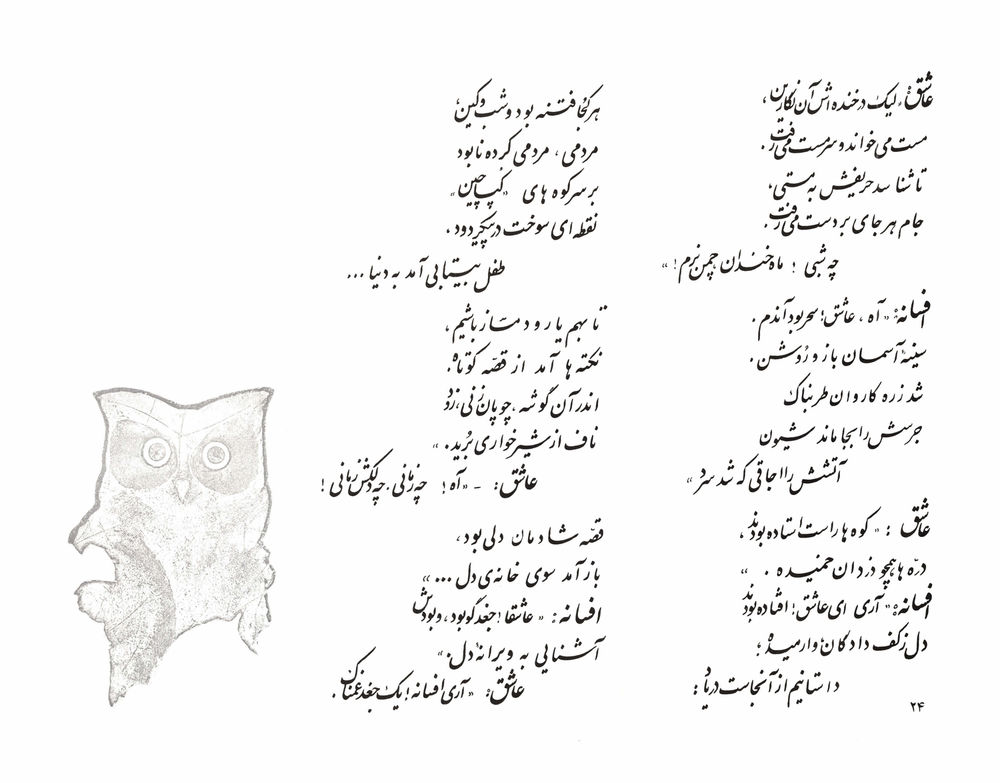 عاشق: لیک در خنده اش آن نگارین،
مست می خواند و سرمست می رفت.
تا شناسد حریفش به مستی،
جام هر جای بر دست می رفت.
چه شبی! ماه خندان، چمن نرم!»
افسانه: «آه، عاشق! سحر بود آندم.
سینهٔ آسمان باز و روشن.
شد ز ره کاروان طربناک
جرسش را بجا ماند شیون
آتشش را اجاقی که شد سرد»
عاشق: «کوه ها راست استاده بودند،
درّه ها همچو دزدان خمیده.»
افسانه: «آری ای عاشق! افتاده بودند
دل ز کف دادگان، وارمیده؛
داستانیم از آنجاست در یاد:
هر کجا فتنه بود و شب و کین،
مردمی، مردمی کرده نابود
بر سر کوه های «کپاچین»
نقطه ای سوخت در پیکر دود،
طفل بیتابی آمد به دنیا...
تا بهم یار و دمساز باشیم،
نکته ها آمد از قصّه کوتاه.
اندر آن گوشه، چوپان زنی، زود
ناف از شیرخواری برید.»
عاشق: - «آه! چه زمانی، چه دلکش زمانی!
قصّه شادمان دلی بود،
باز آمد سوی خانه ی دل...»
افسانه: «عاشقا! جغد گو بود، و بودش
آشنایی به ویرانهٔ دل.»
عاشق: «آری افسانه! یک جغد غمناک.
۲۴